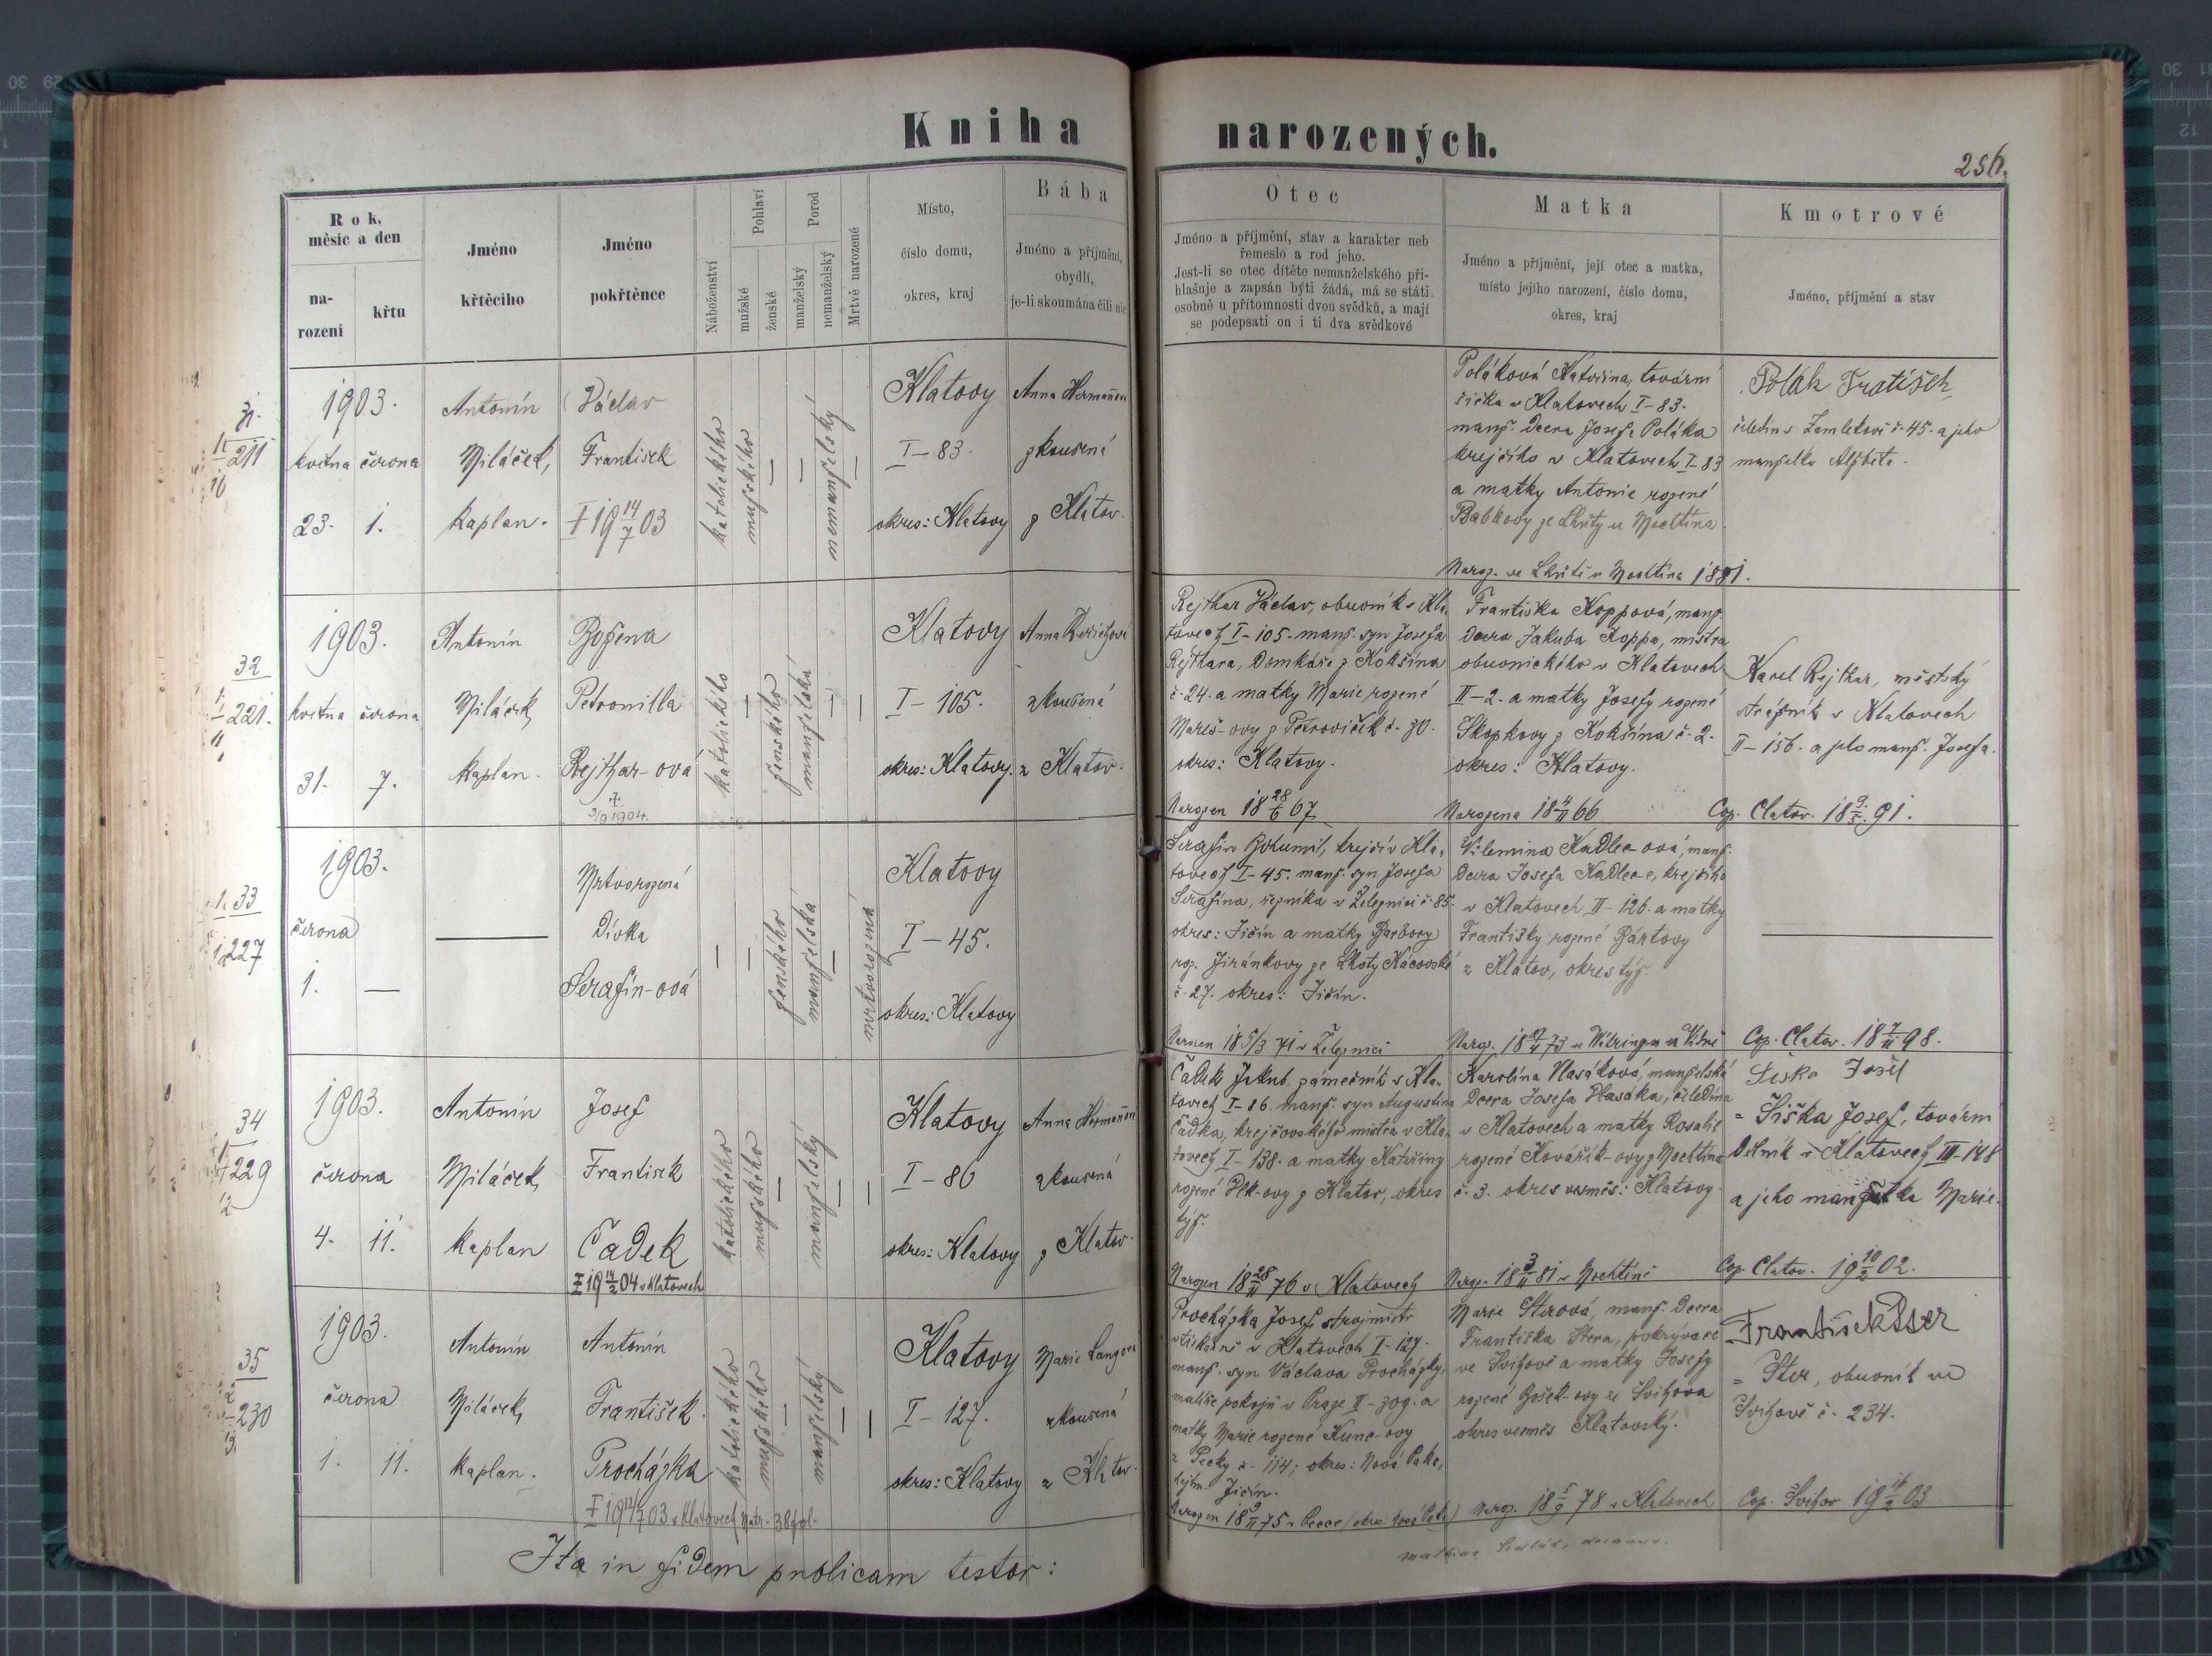 Kniha narozených.
256.
Rok, měsíc a den
narození
křtu
Jméno křtěcího
Jméno pokřtěnce
Náboženství
Pohlaví
mužské
ženské
Porod
manželský
nemanželský
Mrtvě narozené
Místo,
číslo domu,
okres, kraj
Bába
Jméno a příjmění,
obydlí,
je-li skoumána čili nic
Otec
Jméno a příjmění, stav a karakter neb
řemeslo a rod jeho.
Jest-li se otec dítěte nemanželského při-
hlašuje a zapsán býti žádá, má se státi
osobně u přítomnosti dvou svědků, a mají
se podepsati on i ti dva svědkové
Matka
Jméno a příjmění, její otec a matka,
místo jejího narození, číslo domu,
okres, kraj
Kmotrové
Jméno, příjmění a stav
31.
211
1903.
května června
23. 1.
Antonín
Miláček,
kaplan.
Václav
František
‡ 19 14/7 03
katolického
mužského
nemanželský
Klatovy
I-83.
okres: Klatovy
zkoušená
z Klatov.
Poláková Kateřina, továrn
v Klatovech I-83.
manž. dcera Josefa Poláka
krejčího v Klatovech I-83
a matky Antonie rozené
Babkovy ze Lhůty u Mochtína
Naroz. ve Lhůtě u Mochtína 1881.
Polák
čeledín z č. 45. a jeho
manželka Alžběta.
32
221.
1903.
května června
31. 7.
Antonín
Miláček,
kaplan.
Božena
Petronilla
Rejthar-ová
†
3/9 1904.
katolického
ženského
manželská
Klatovy
I-105.
okres: Klatovy.
Anna
zkoušená
z Klatov.
Rejthar Václav, obuvník v Kla-
tovech I-105. manž. syn Josefa
Rejthara, domkáře z Kokšína
č. 24. a matky Marie rozené
Mareš-ovy z Petroviček č. 30.
okres: Klatovy.
Narozen 18 28/6 67
Františka Koppová, manž.
dcera Jakuba Koppa, mistra
obuvnického v Klatovech
II-2. a matky Josefy rozené
Skopkovy z Kokšína č. 2.
okres: Klatovy.
Narozena 18 4/11 66
Karel Rejthar, městský
strážník v Klatovech
II-156. a jeho manž. Josefa.
Cop. Clatov. 18 9/5 91.
33
227
1903.
června
1. —
Mrtvorozená
Dívka
Serafín-ová
ženského
manželská
mrtvorozená
Klatovy
I-45.
okres: Klatovy
Serafín Bohumil, krejčí v Kla-
tovech I-45. manž. syn Josefa
Serafína, řezníka v Železnici č. 85.
okres: Jičín a matky Barbory
roz. Jiránkovy ze Lhoty Kácovské
č. 27. okres: Jičín.
18 5/3 71 v Železnici
Vilemina Kadlec-ová, manž.
dcera Josefa Kadlec-e, krejčího
v Klatovech II-126. a matky
Františky rozené Bártovy
z Klatov, okres týž.
Cop. Clatov. 18 7/11 98.
34
229
1903.
června
4. 11.
Antonín
Miláček,
kaplan
Josef
František
Čadek
‡ 19 14/2 04 v Klatovech
katolického
mužského
manželský
Klatovy
I-86
okres: Klatovy
zkoušená
z Klatov.
Čadek Jakub, zámečník v Kla-
tovech I-86. manž. syn Augustina
Čadka, krejčovského mistra v Kla-
tovech I-138. a matky Kateřiny
rozené z Klatov, okres
týž.
Narozen 18 28/11 76 v Klatovech
Karolina Hasáková, manželská
dcera Josefa Hasáka, čeledína
v Klatovech a matky Rosalie
rozené Kovářík-ovy z Mochtína
č. 3. okres vesměs: Klatovy.
Naroz. 18 3/11 81 v Mochtíně
Šiška Josef
= Šiška Josef, továrn
dělník v Klatovech III-148
a jeho manželka Marie.
Cop. Clatov. 19 10/2 02.
35
230
1903.
června
1. 11.
Antonín
Miláček,
kaplan.
Antonín
František
Procházka
‡ 19 12/7 03 v Klatovech
katolického
mužského
manželský
Klatovy
I-127.
okres: Klatovy
Marie Langová
zkoušená
z Klatov.
Procházka Josef strojmistr
v Klatovech I-127.
manž. syn Václava Procházky,
malíře pokojů v Praze II-309. a
matky Marie rozené Kunc-ovy
z Pecky č. 114; okres: Nová Paka,
hejtm. Jičín.
Marie Šterová, manž. dcera
Františka Štera, pokrývače
ve Švihově a matky Josefy
rozené Bošek-ovy ze Švihova
okres vesměs Klatovský.
Naroz. 18 5/9 78 v Klatovech
František Ster
= Ster, obuvník ve
Švihově č. 234.
Cop. Švihov 19 16/2 03
Ita in fidem publicam testor: